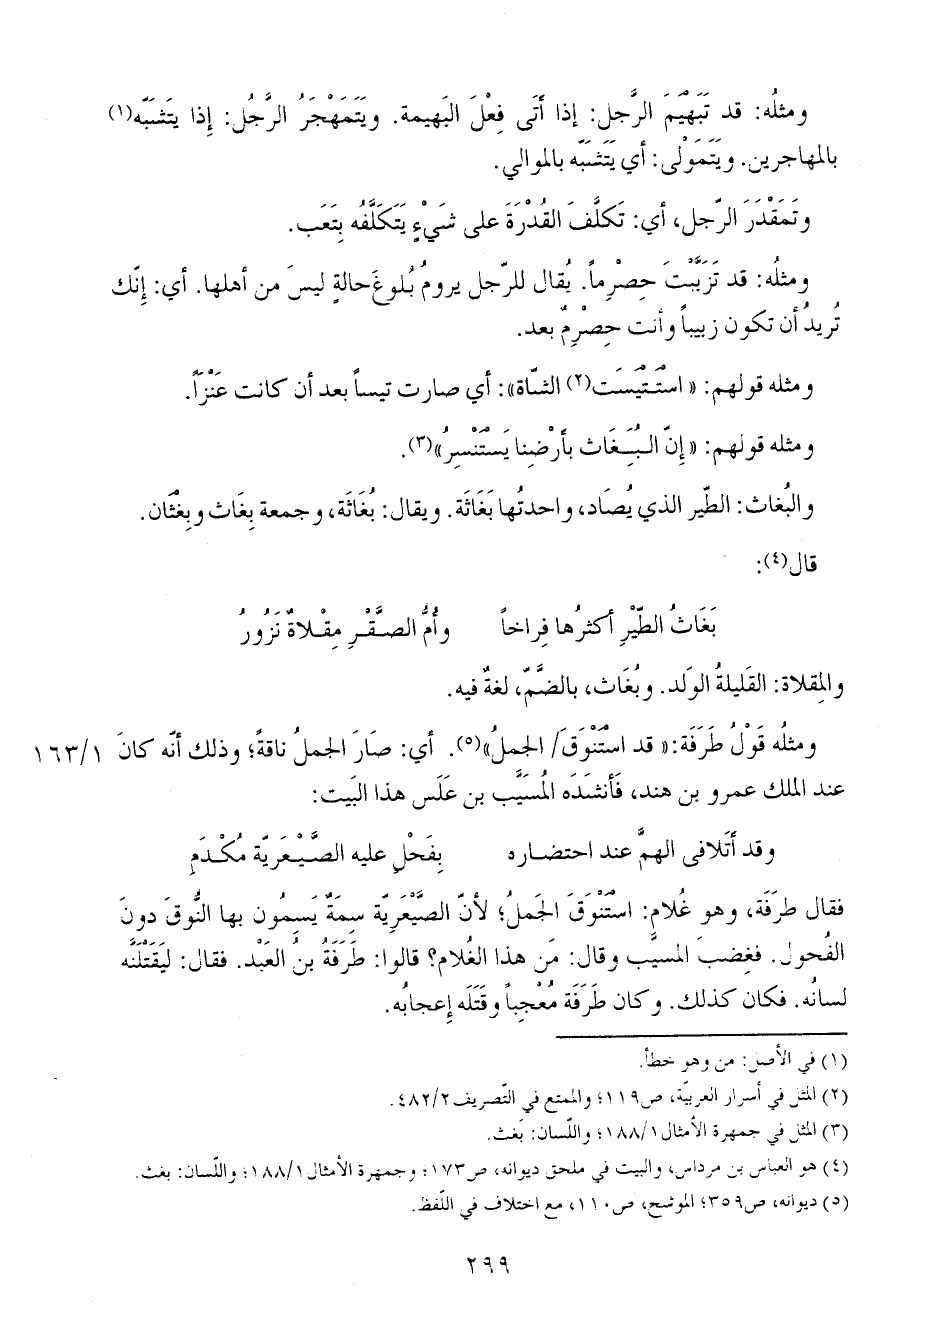 ومثلُه: قد تَبَهْيَمَ الرَّجل: إذا أَتَى فِعْلَ البَهيمة. ويَتَمَهْجَرُ الرَّجُل: إِذا يتَشَبَّه(١)
بالمهاجرين. ويَتَمَوْلى: أي يَتَشَبَّه بالموالي.
وتَمَقْدَرَ الرّجل، أي: تَكلَّفَ القُدْرَةَ على شَيْءٍ يَتَكَلَّفُه بِتَعَب.
ومثلُه: قد تَزَبَّبْتَ حِصْرِماً. يُقال للرّجل يرومُ بُلوغَ حالةٍ ليسَ من أهلها. أي: إِنّك
تُريدُ أن تكون زبيباً وأنت حِصْرِمٌ بعد.
ومثله قولهم: «استَتْيَسَت(٢) الشّاة»: أي صارت تيساً بعد أن كانت عَنْزاً.
ومثله قولهم: «إِنّ البُغَاث بأَرْضِنا يَسْتَنْسِرُ»(٣).
والبُغاث: الطّير الذي يُصَاد، واحدتُها بَغَاثَة. ويقال: بُغَاثَة، وجمعة بِغَاث وبِغْثَان.
قال(٤):
بَغَاثُ الطّيْرِ أكثرُها فِراخاً وأُمُّ الصَّقْرِ مِقْلاةٌ نَزُورُ
والمِقلاة: القَليلةُ الوَلد. وبُغَاث، بالضّمّ، لغةٌ فيه.
ومثلُه قَوْلُ طَرَفَة: «قد اسْتَنْوَقَ/ الجملُ»(٥). أي: صَارَ الجملُ ناقةً؛ وذلك أنّه كانَ ١٦٣/١
عند الملك عمرو بن هند، فَأَنشَدَه المُسَيَّب بن عَلَس هذا البَيت:
وقد أَتَلافى الهمَّ عند احتضاره بِفَحْلٍ عليه الصَّيْعَرِيّة مُكْدَمِ
فقال طرَفَة، وهو غُلام: اسْتَنْوَقَ الجَملُ؛ لأنّ الصَّيْعَرِيّة سِمَةٌ يَسِمُون بها النُّوقَ دونَ
الفُحول. فغضِبَ المسيَّب وقال: مَن هذا الغُلام؟ قالوا: طَرَفَةُ بنُ العَبْد. فقال: ليَقْتلَنَّه
لسانُه. فكان كذلك. وكان طَرَفَة مُعْجباً وقَتَلَه إعجابُه.
(١) في الأصل: من وهو خطأ.
(٢) المثل في أسرار العربيّة، ص١١٩؛ والممتع في التّصريف ٤٨٢/٢.
(٣) المثل في جمهرة الأمثال ١٨٨/١؛ واللّسان: بَغث.
(٤) هو العباس بن مرداس، والبيت في ملحق ديوانه، ص١٧٣؛ وجمهرة الأمثال ١٨٨/١؛ واللّسان: بغث.
(٥) ديوانه، ص٣٥٩؛ الموشح، ص١١٠، مع اختلاف في اللّفظ.
٢٩٩